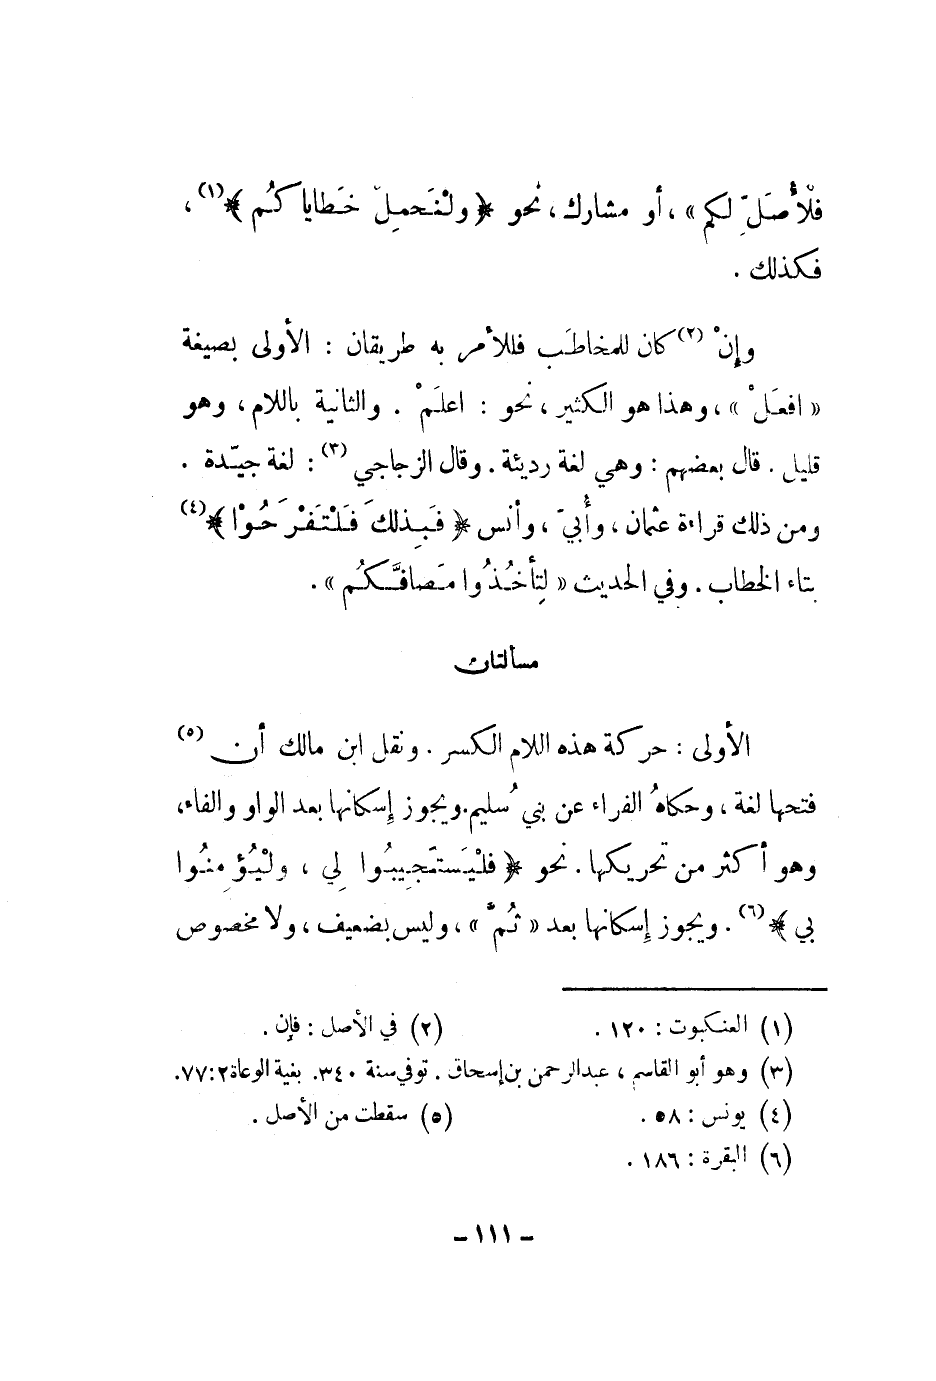 فلْأُصَلِّ لكم » ، أو مشارك ، نحو ﴿ ولْنَحمِلْ خَطاياكُم ﴾(١) ،
فكذلك .
وإنْ (٢) كان للمخاطَب فللأمر به طريقان : الأولى بصيغة
« افعَلْ » ، وهذا هو الكثير ، نحو : اعلَمْ . والثانية باللام ، وهو
قليل . قال بعضهم : وهي لغة رديئة . وقال الزجاجي (٣) : لغة جيّدة .
ومن ذلك قراءة عثمان ، وأُبيّ ، وأنس ﴿ فَبِذلكَ فَلْتَفْرَحُوْا ﴾(٤)
بتاء الخطاب . وفي الحديث « لِتأخُذُوا مَصافَّكُم » .
مسألتان
الأولى : حركة هذه اللام الكسر . ونقل ابن مالك أن (٥)
فتحها لغة ، وحكاهُ الفراء عن بني سُليم. ويجوز إسكانها بعد الواو والفاء،
وهو أكثر من تحريكها . نحو ﴿ فلْيَستَجِيبُوا لِي ، ولْيُؤمِنُوا
بي ﴾(٦) . ويجوز إسكانها بعد « ثُمَّ » ، وليس بضعيف ، ولا مخصوص
(١) العنكبوت : ١٢٠ .   (٢) في الأصل : فإن .
(٣) وهو أبو القاسم ، عبدالرحمن بن إسحاق . توفي سنة ٣٤٠. بغية الوعاة ٢:٧٧.
(٤) يونس : ٥٨ .   (٥) سقطت من الأصل .
(٦) البقرة : ١٨٦ .
- ١١١ -